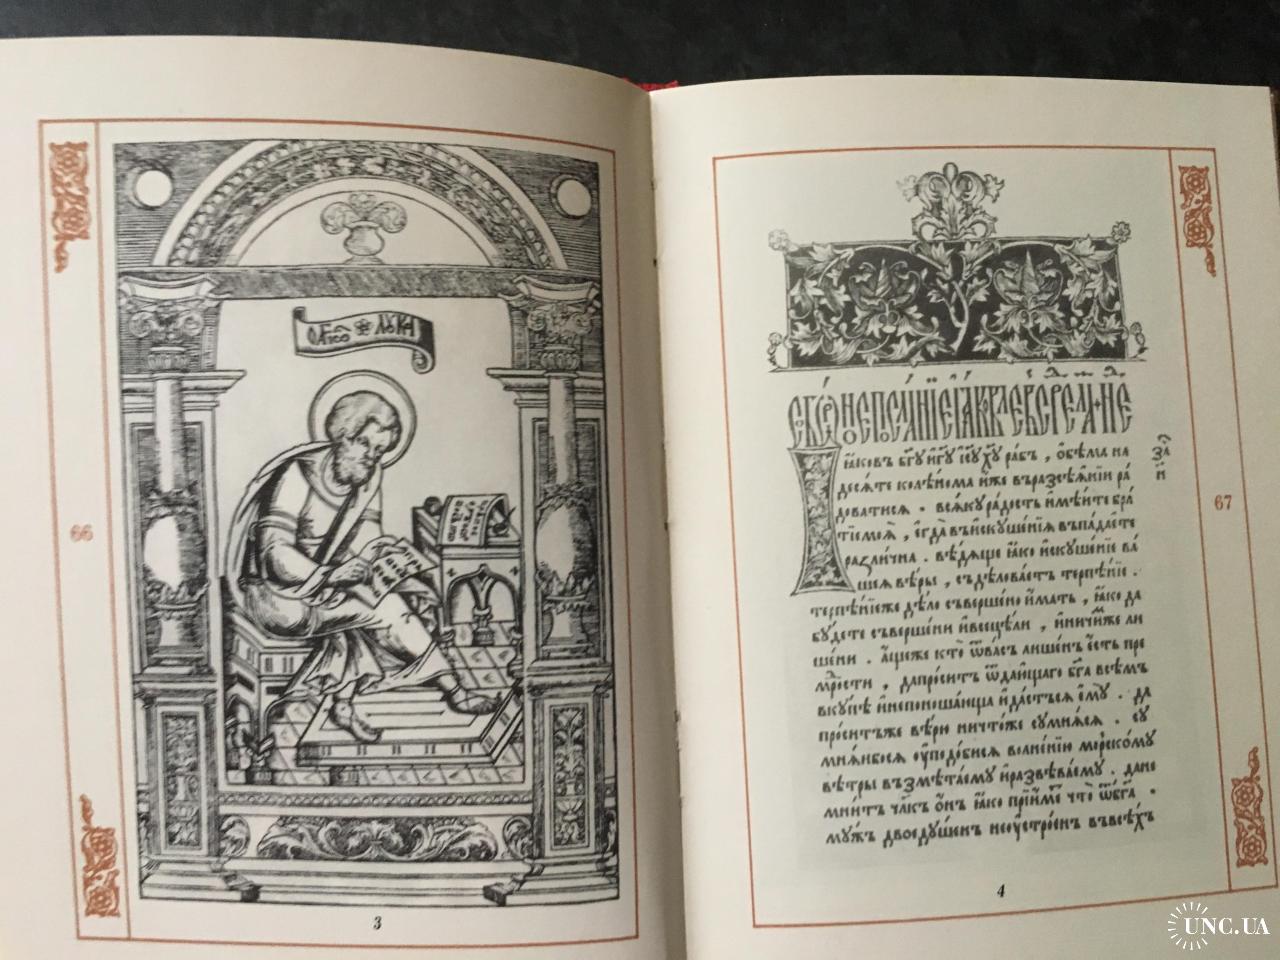 ЛУКА
66
3
67
і҆а́ковъ бг҃у и҆гⷭ҇у і҆су хⷭ҇у рабъ , ѻ҆бѣма на
десѧте колѣнома и҆́же въразсѣѧ́нїи ра
доватисѧ . всѧку ра́дость и҆мѣ́ите бра
тїемоѧ̀ , є҆гда̀ въи҆скуше́нїѧ въпада́ете
разли́чна . вѣ́дѧще ꙗ҆́ко и҆скуше́нїе ва
шеѧ вѣ́ры , съдѣловаетъ терпѣ́нїе .
терпѣ́нїеже дѣ́ло съвершено и҆́мать , ꙗ҆́ко да
бꙋ́дете съверше́ни и҆всецѣ́ли , и҆ничи́мже ли
ше́ни . а҆́щеже кто̀ ѿва́съ лише́нъ є҆́сть пре
мⷣрости , дапро́ситъ ѿдаю́щаго бг҃а всѣ́мъ
вкꙋ́пѣ и҆непоноша́юща и҆да́стьсѧ є҆мꙋ̀ . да
про́ситъже вѣ́рою ничто́же сꙋмнѧ́сѧ . сꙋ
мнѧ́ибосѧ ᲂу҆подо́бисѧ волне́нїю морско́мꙋ
вѣ́тры възмѣта́емꙋ и҆развѣва́емꙋ . дане
мни́тъ чл҃къ ѻ҆́нъ ꙗ҆́ко прїи́метъ что̀ ѿбг҃а .
мꙋ́жъ двоедꙋ́шенъ неᲂу҆стро́енъ въвсѣ́хъ
4
UNC.UA